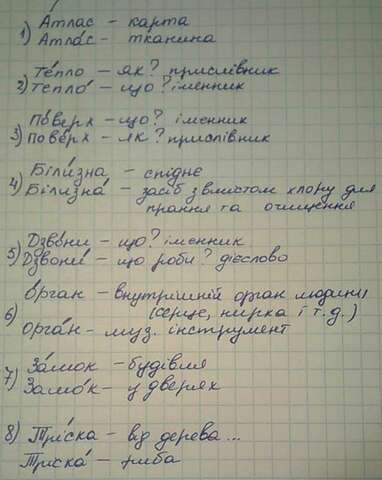 1) А́тлас – карта
Атла́с – тканина
2) Те́пло – як? прислівник
Тепло́ – що? іменник
3) По́верх – що? іменник
Пове́рх – як? прислівник
4) Біли́зна – спіднє
Білизна́ – засіб з вмістом хлору для
прання та очищення
5) Дзво́ни – що? іменник
Дзвони́ – що роби? дієслово
6) О́рган – внутрішній орган людини
(серце, нирка і т.д.)
Орга́н – муз. інструмент
7) За́мок – будівля
Замо́к – у дверях
8) Трі́ска – від дерева...
Тріска́ – риба